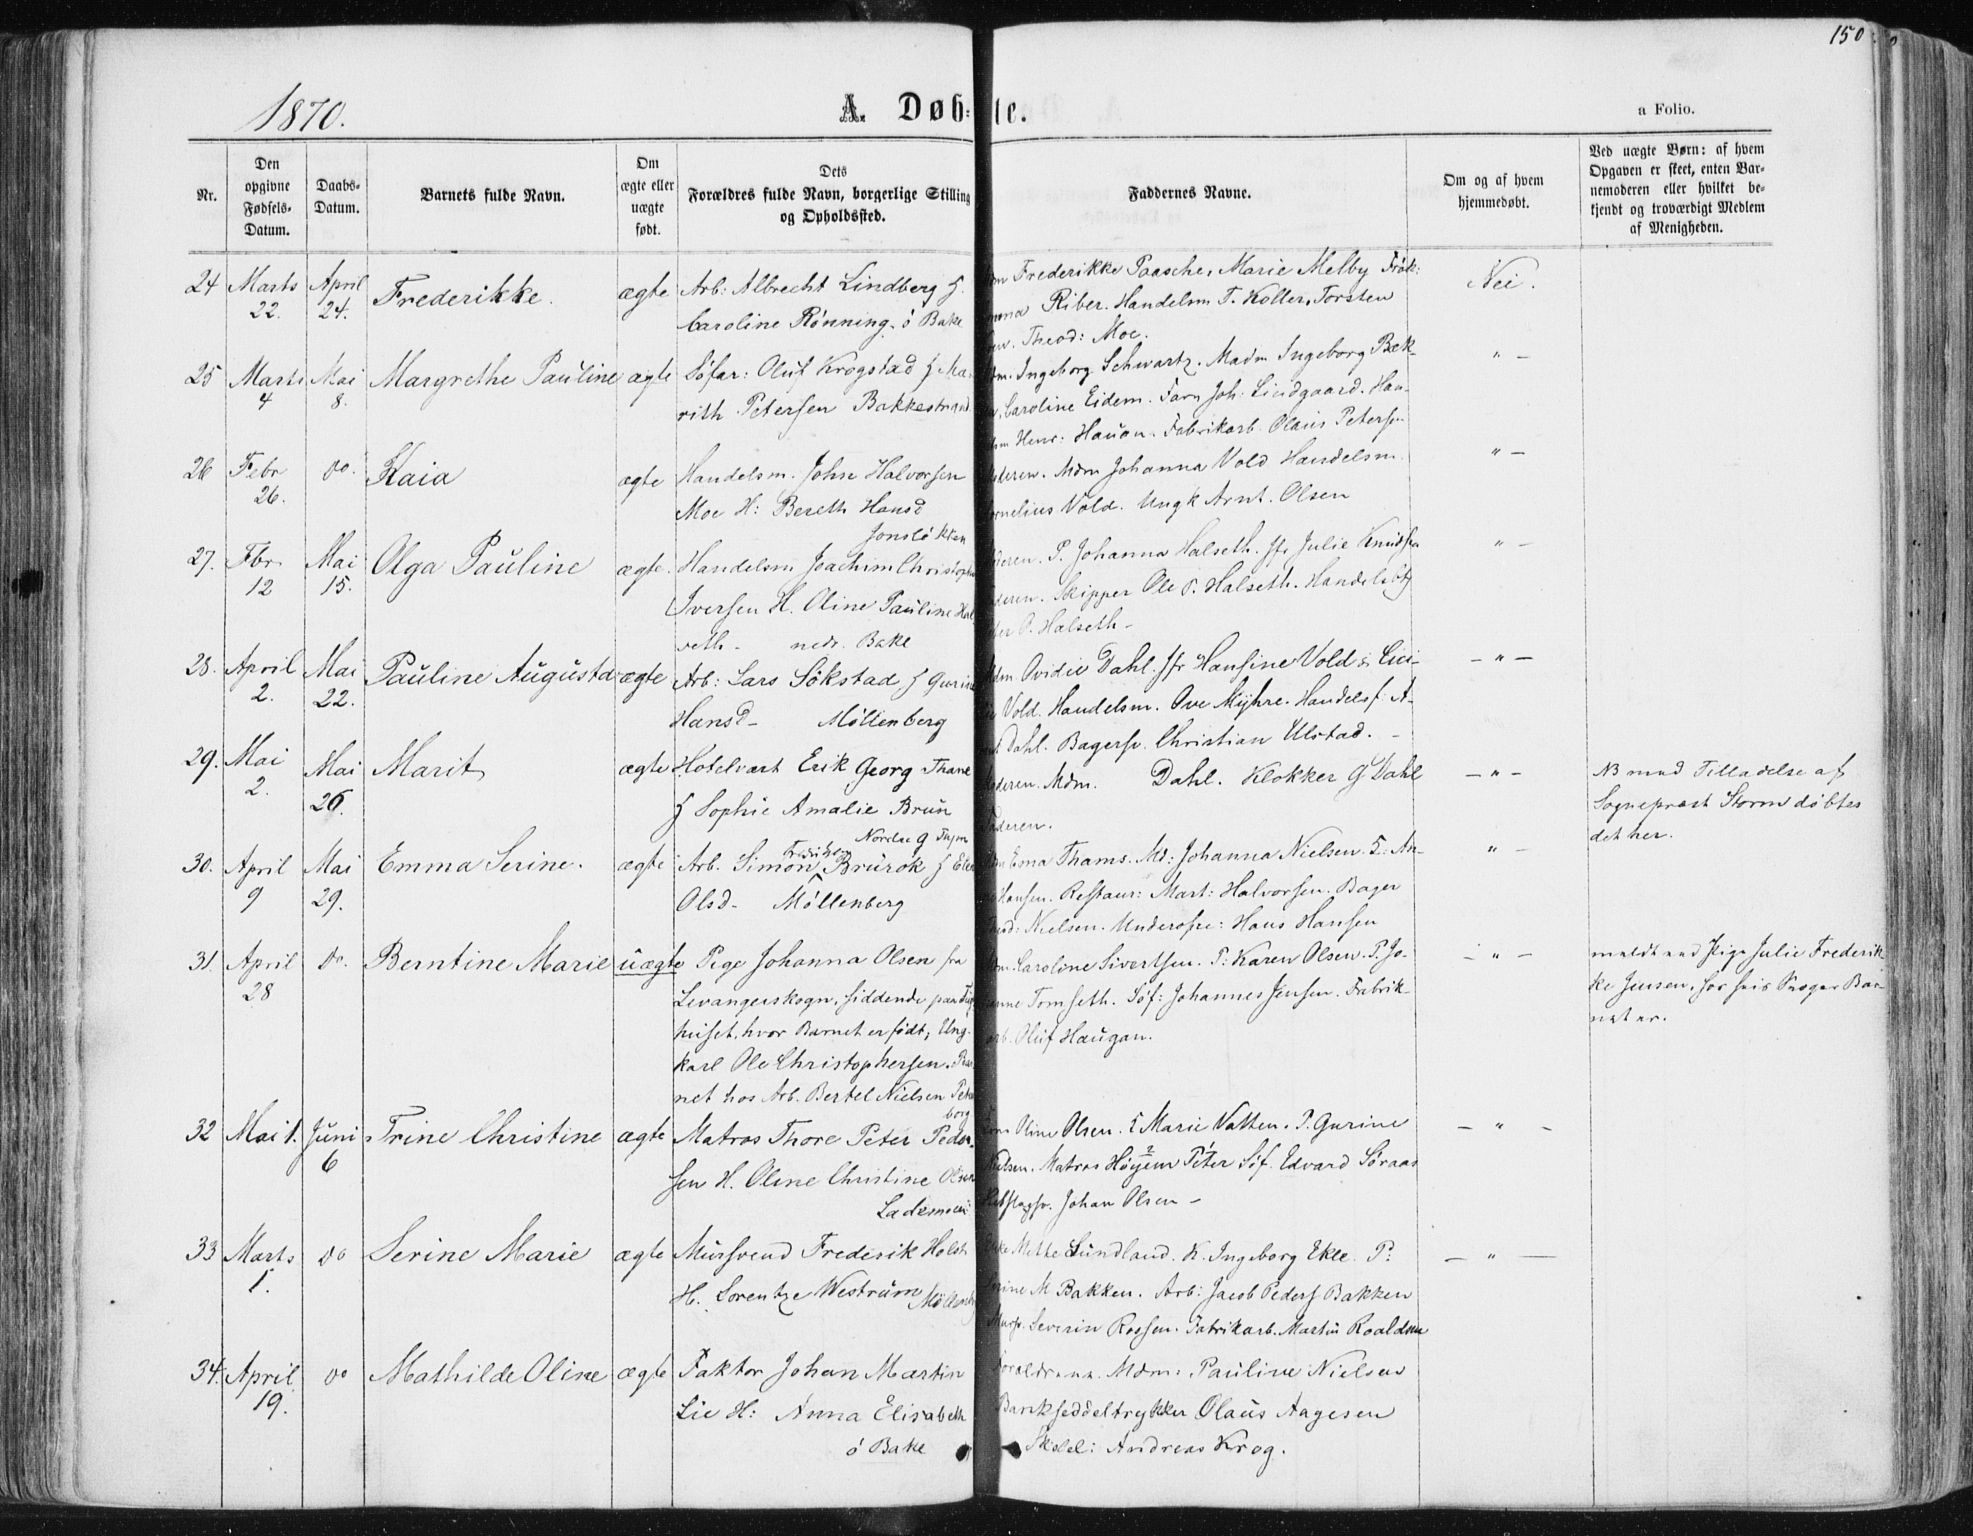 150
1870.
A. Døb-te.
a Folio.
Nr.
Den opgivne Fødsels-Datum.
Daabs-Datum.
Barnets fulde Navn.
Om ægte eller uægte født.
Dets Forældres fulde Navn, borgerlige Stilling og Opholdssted.
Faddernes Navne.
Om og af hvem hjemmedøbt.
Ved uægte Børn: af hvem Opgaven er skeet, enten Barnemoderen eller hvilket bekjendt og troværdigt Medlem af Menigheden.
24 Marts 22. April 24. Frederikke. ægte Arb: Albrecht Lindberg &
Caroline Rönning. ö Bake
Frederikke Paasche, Marie Melby Frök:
Riber. Handelsm T. Koller, Torsten
Theod: Moe.
Nei.
25 Marts 4 Mai 8. Margrethe Pauline ægte Söfar: Oluf Krogstad & Ma-
rith Petersen Bakkestrand
Ingeborg Schwartz. Madm Ingeborg Bek-
Caroline Eidem. Farv Joh. Lindgaard. Han-
Henr: Hauan. Fabrikarb. Olaus Petersen
" –
26 Febr 26. do. Kaia ægte Handelsm. John Halvorsen
Moe H: Bereth Hansd
Mdm Johanna Vold Handelsm.
Cornelius Vold. Ungk Arnt. Olsen
" –
27. Fbr. 12 Mai 15. Olga Pauline ægte. Handelsm Joachim Christoph
Iversen H. Oline Pauline Hal-
seth – nedr. Bake
P. Johanna Halseth. Jfr Julie Knudsen
Skipper Ole P. Halseth. Handelsbtj
P. Halseth –
" –
28. April 2. Mai 22. Pauline Augusta ægte Arb: Lars Sökstad & Gurine
Hansd – Möllenberg
Ovidie Dahl. Jfr Hansine Vold &
Vold. Handelsm. Ove Myhre. Handelsf: A-
Dahl. Bagersv. Christian Ulstad. –
– " –
29. Mai 2. Mai 26. Marit ægte Hotelvært Erik Georg Thane
& Sophie Amalie Brun
Nordre G
Mdm. Dahl. Klokker G Dahl
Faderen.
– " –
NB med Tilladelse af
Sognepræst Storm döbtes
det her.
30. April 9 Mai 29. Emma Serine. ægte Arb. Simon Brurok & Elen
Olsd – Möllenberg
Thams. Md: Johanna Nielsen. An-
Hansen. Restaur: Mart: Halvorsen. Bager
Nielsen. Underofce: Hans Hansen
" –
31. April 28 do. Berntine Marie uægte Pige Johanna Olsen fra
Levangerskogn, siddende paa Tugt-
huset, hvor Barnet er født, Ung-
karl Ole Christophersen. Bar-
net hos Arb. Bertel Nielsen Peters
borg
Caroline Sivertsen. P: Karen Olsen. P. Jo-
Tomseth. Söf: Johannes Jensen. Fabrik-
arb. Oluf Haugan.
– " –
meldt ved Pige Julie Frederik-
ke Jensen, for hvis Broger Bar-
net er.
32 Mai 1. Juni 6 Trine Christine ægte Matros Thore Peter Peder-
sen H. Oline Christine Olsen
Lademoen
Oline Olsen. & Marie Vatten. P. Gurine
Nielsen. Matros Höyem Péter Söf. Edvard Söraas
Johan Olsen –
– " –
33 Marts 1. do Serine Marie ægte Mursvend Frederik Holst
H. Lorentze Westrum Möllenb
Mette Sundland. K. Ingeborg Ekle. P:
Serine M Bakken. Arb: Jacob Peders Bakken
Murs. Severin Rossen. Fabrikarb. Martin Roaldsen
– " –
34. April 19. do Mathilde Oline ægte Faktor Johan Martin
Lie H: Anna Elisabeth
ö Bake
Forældrene. Mdm: Pauline Nielsen
Bankseddeltrykker Olaus Aagesen
Andreas Krog.